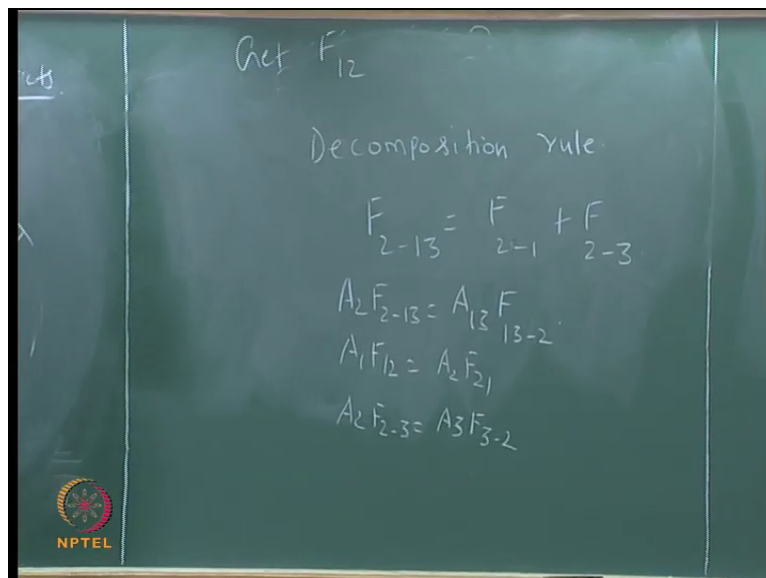 Get F₁₂
Decomposition rule
F₂₋₁₃ = F₂₋₁ + F₂₋₃
A₂F₂₋₁₃ = A₁₃F₁₃₋₂
A₁F₁₂ = A₂F₂₁
A₂F₂₋₃ = A3F₃₋₂
λ
NPTEL